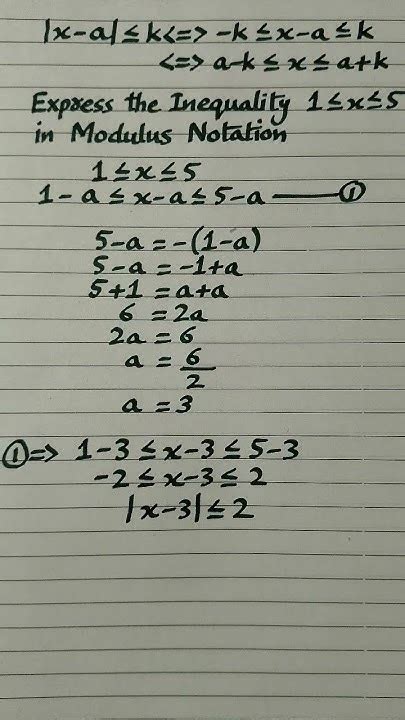 |x-a| ≤ k <=> -k ≤ x-a ≤ k
<=> a-k ≤ x ≤ a+k
Express the Inequality 1 ≤ x ≤ 5
in Modulus Notation
1 ≤ x ≤ 5
1-a ≤ x-a ≤ 5-a —— ①
5-a = -(1-a)
5-a = -1+a
5+1 = a+a
6 = 2a
2a = 6
a = 6/2
a = 3
① => 1-3 ≤ x-3 ≤ 5-3
-2 ≤ x-3 ≤ 2
|x-3| ≤ 2